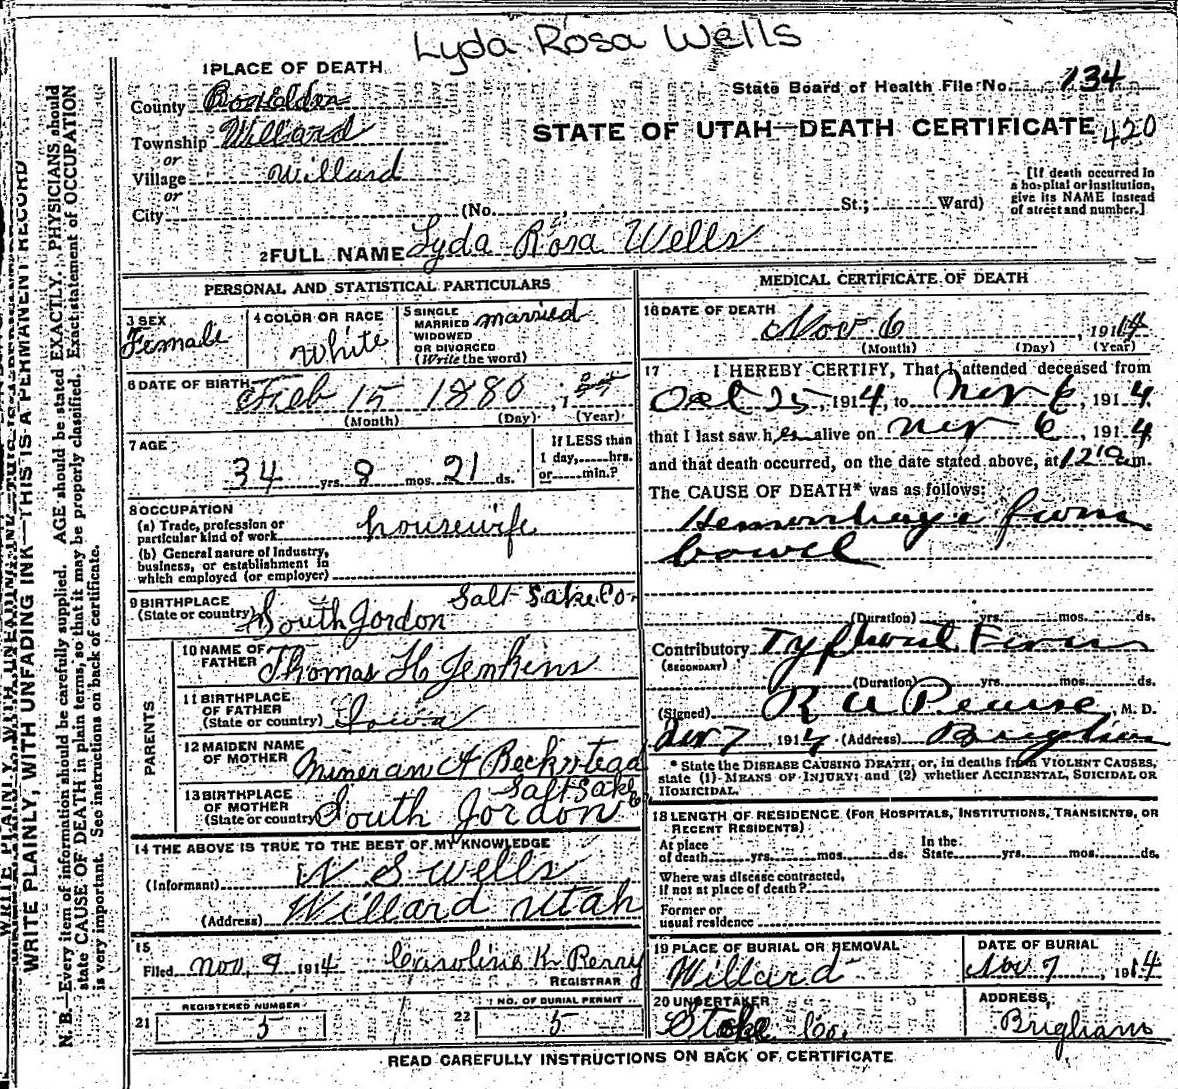 Lyda Rosa Wells
1 PLACE OF DEATH
State Board of Health File No. 134
County Boxelder
STATE OF UTAH—DEATH CERTIFICATE 420
Township Willard
or
Village Willard
or
City (No. St.; Ward)
[If death occurred in
a hospital or institution,
give its NAME instead
of street and number.]
2 FULL NAME Lyda Rosa Wells
PERSONAL AND STATISTICAL PARTICULARS
3 SEX
Female
4 COLOR OR RACE
White
5 SINGLE
MARRIED
WIDOWED
OR DIVORCED
(Write the word)
married
6 DATE OF BIRTH Feb 15 1880, 1
(Month) (Day) (Year)
7 AGE
34 yrs. 8 mos. 21 ds.
If LESS than
1 day, hrs.
or min.?
8 OCCUPATION
(a) Trade, profession or
particular kind of work housewife
(b) General nature of Industry,
business, or establishment in
which employed (or employer)
9 BIRTHPLACE
(State or country) South Jordon Salt Lake Co.
PARENTS
10 NAME OF
FATHER Thomas H Jenkins
11 BIRTHPLACE
OF FATHER
(State or country) Iowa
12 MAIDEN NAME
OF MOTHER A Beckstead
13 BIRTHPLACE
OF MOTHER
(State or country) South Jordon Salt Lake Co
14 THE ABOVE IS TRUE TO THE BEST OF MY KNOWLEDGE
(Informant) W S Wells
(Address) Willard Utah
15
Filed Nov. 9 1914 Caroline K. Perry
REGISTRAR
21 REGISTERED NUMBER
5
22 NO. OF BURIAL PERMIT
5
MEDICAL CERTIFICATE OF DEATH
16 DATE OF DEATH
Nov 6, 1914
(Month) (Day) (Year)
17 I HEREBY CERTIFY, That I attended deceased from
Oct 25, 1914, to Nov 6, 1914.
that I last saw her alive on Nov 6, 1914
and that death occurred, on the date stated above, at m.
The CAUSE OF DEATH* was as follows:
Hemorrhage from
bowel
(Duration) yrs. mos. ds.
Contributory Typhoid Fever
(SECONDARY)
(Duration) yrs. mos. ds.
(Signed) R A Pearse, M. D.
Nov 7, 1914 (Address) Brigham
* State the DISEASE CAUSING DEATH, or, in deaths from VIOLENT CAUSES,
state (1) MEANS OF INJURY; and (2) whether ACCIDENTAL, SUICIDAL OR
HOMICIDAL.
18 LENGTH OF RESIDENCE (FOR HOSPITALS, INSTITUTIONS, TRANSIENTS, OR
RECENT RESIDENTS)
At place
of death yrs. mos. ds.
In the
State yrs. mos. ds.
Where was disease contracted,
if not at place of death?
Former or
usual residence
19 PLACE OF BURIAL OR REMOVAL
Willard
DATE OF BURIAL
Nov 7, 1914
20 UNDERTAKER
Co.
ADDRESS
Brigham
READ CAREFULLY INSTRUCTIONS ON BACK OF CERTIFICATE
WRITE PLAINLY, WITH UNFADING INK—THIS IS A PERMANENT RECORD
N. B.—Every item of information should be carefully supplied. AGE should be stated EXACTLY. PHYSICIANS should
state CAUSE OF DEATH in plain terms, so that it may be properly classified. Exact statement of OCCUPATION
is very important. See instructions on back of certificate.